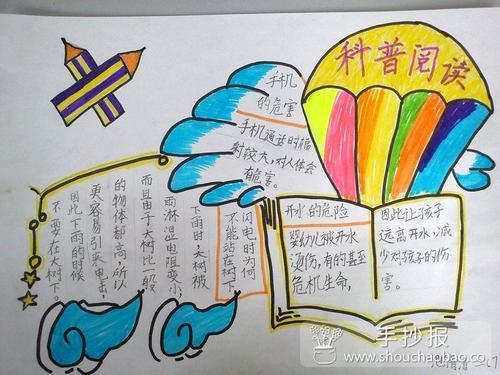 科普阅读
手机
的危害
手机通话时辐
射较大,对人体会
有脆害。
闪电时为何
不能站在树下
下雨时,大树被
雨淋湿电阻变小,
而且由于大树比一般
的物体都高,所以
更容易引来电击,
因此下雨的时候
不要在大树下。
开水的危险
婴幼儿被开水
烫伤,有的甚至
危机生命,
因此让孩子
远离开水,减
少对孩子的伤
害。
手抄报
www.shouchaobao.co